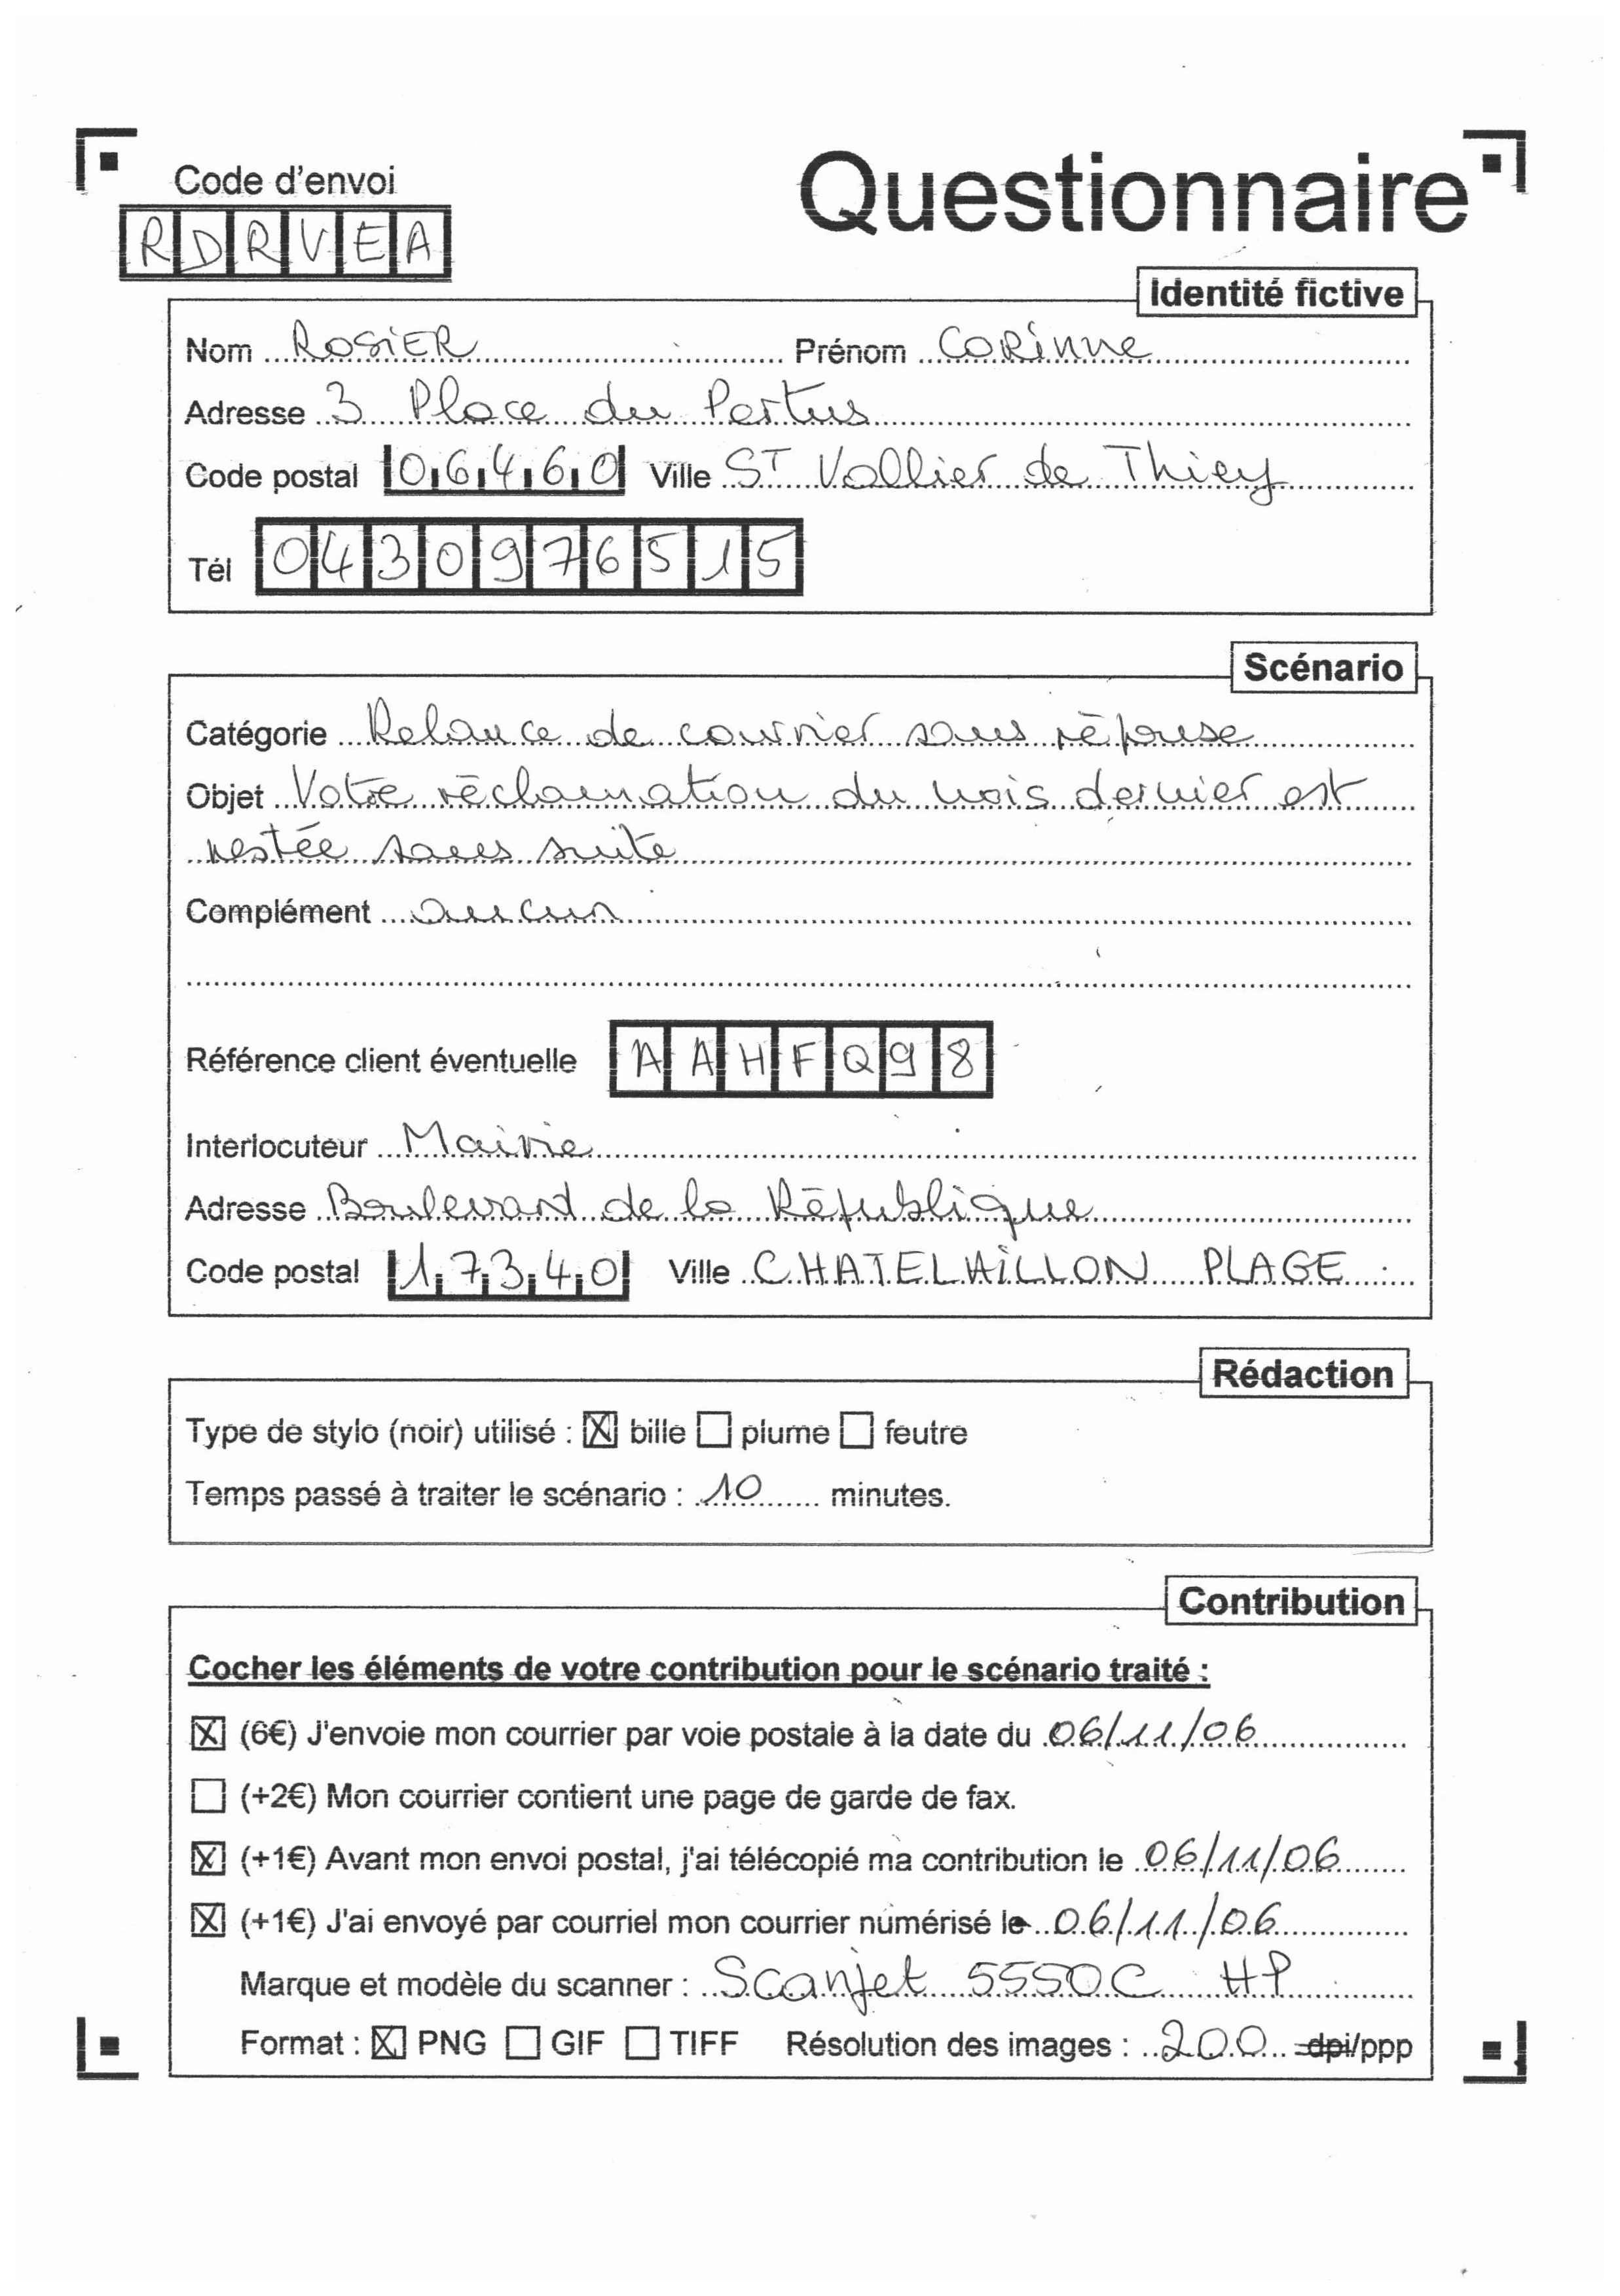 Code d'envoi
Questionnaire
RDRVEA
Identité fictive
Nom ROSIER Prénom CORinne
Adresse 3 Place du Pertus
Code postal 06460 Ville ST Vallier de Thiey
Tél 0430976515
Scénario
Catégorie Relance de courrier sans réponse
Objet Votre réclamation du mois dernier est
restée sans suite
Complément aucun
Référence client éventuelle AAHFQ98
Interlocuteur Mairie
Adresse Boulevard de la République
Code postal 17340 Ville CHATELAILLON PLAGE
Rédaction
Type de stylo (noir) utilisé : ☒ bille ☐ plume ☐ feutre
Temps passé à traiter le scénario : 10 minutes.
Contribution
Cocher les éléments de votre contribution pour le scénario traité :
☒ (6€) J'envoie mon courrier par voie postale à la date du 06/11/06
☐ (+2€) Mon courrier contient une page de garde de fax.
☒ (+1€) Avant mon envoi postal, j'ai télécopié ma contribution le 06/11/06
☒ (+1€) J'ai envoyé par courriel mon courrier numérisé le 06/11/06
Marque et modèle du scanner : Scanjet 5550C HP
Format : ☒ PNG ☐ GIF ☐ TIFF Résolution des images : 200 dpi/ppp